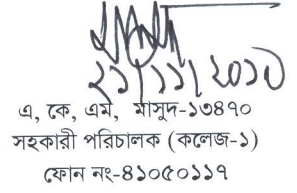 ২১/১১/২০১০
এ, কে, এম, মাসুদ-১৩৪৭০
সহকারী পরিচালক (কলেজ-১)
ফোন নং-৪১০৫০১১৭